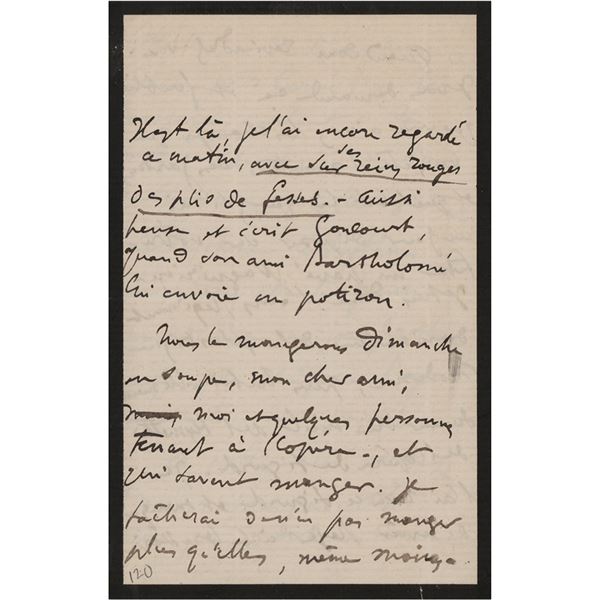 Il est là, je l'ai encore regardé
ce matin, avec sur ses reins rouges
des plis de fesses. - Aussi
pense et écrit Goncourt,
quand son ami Bartholomé
lui envoie un potiron.
Nous le mangerons dimanche
en soupe, mon cher ami,
moi et quelques personnes
tenant à l'opéra -, et
qui savent manger. Je
tâcherai d'en pas manger
plus qu'elles, même moins -
120